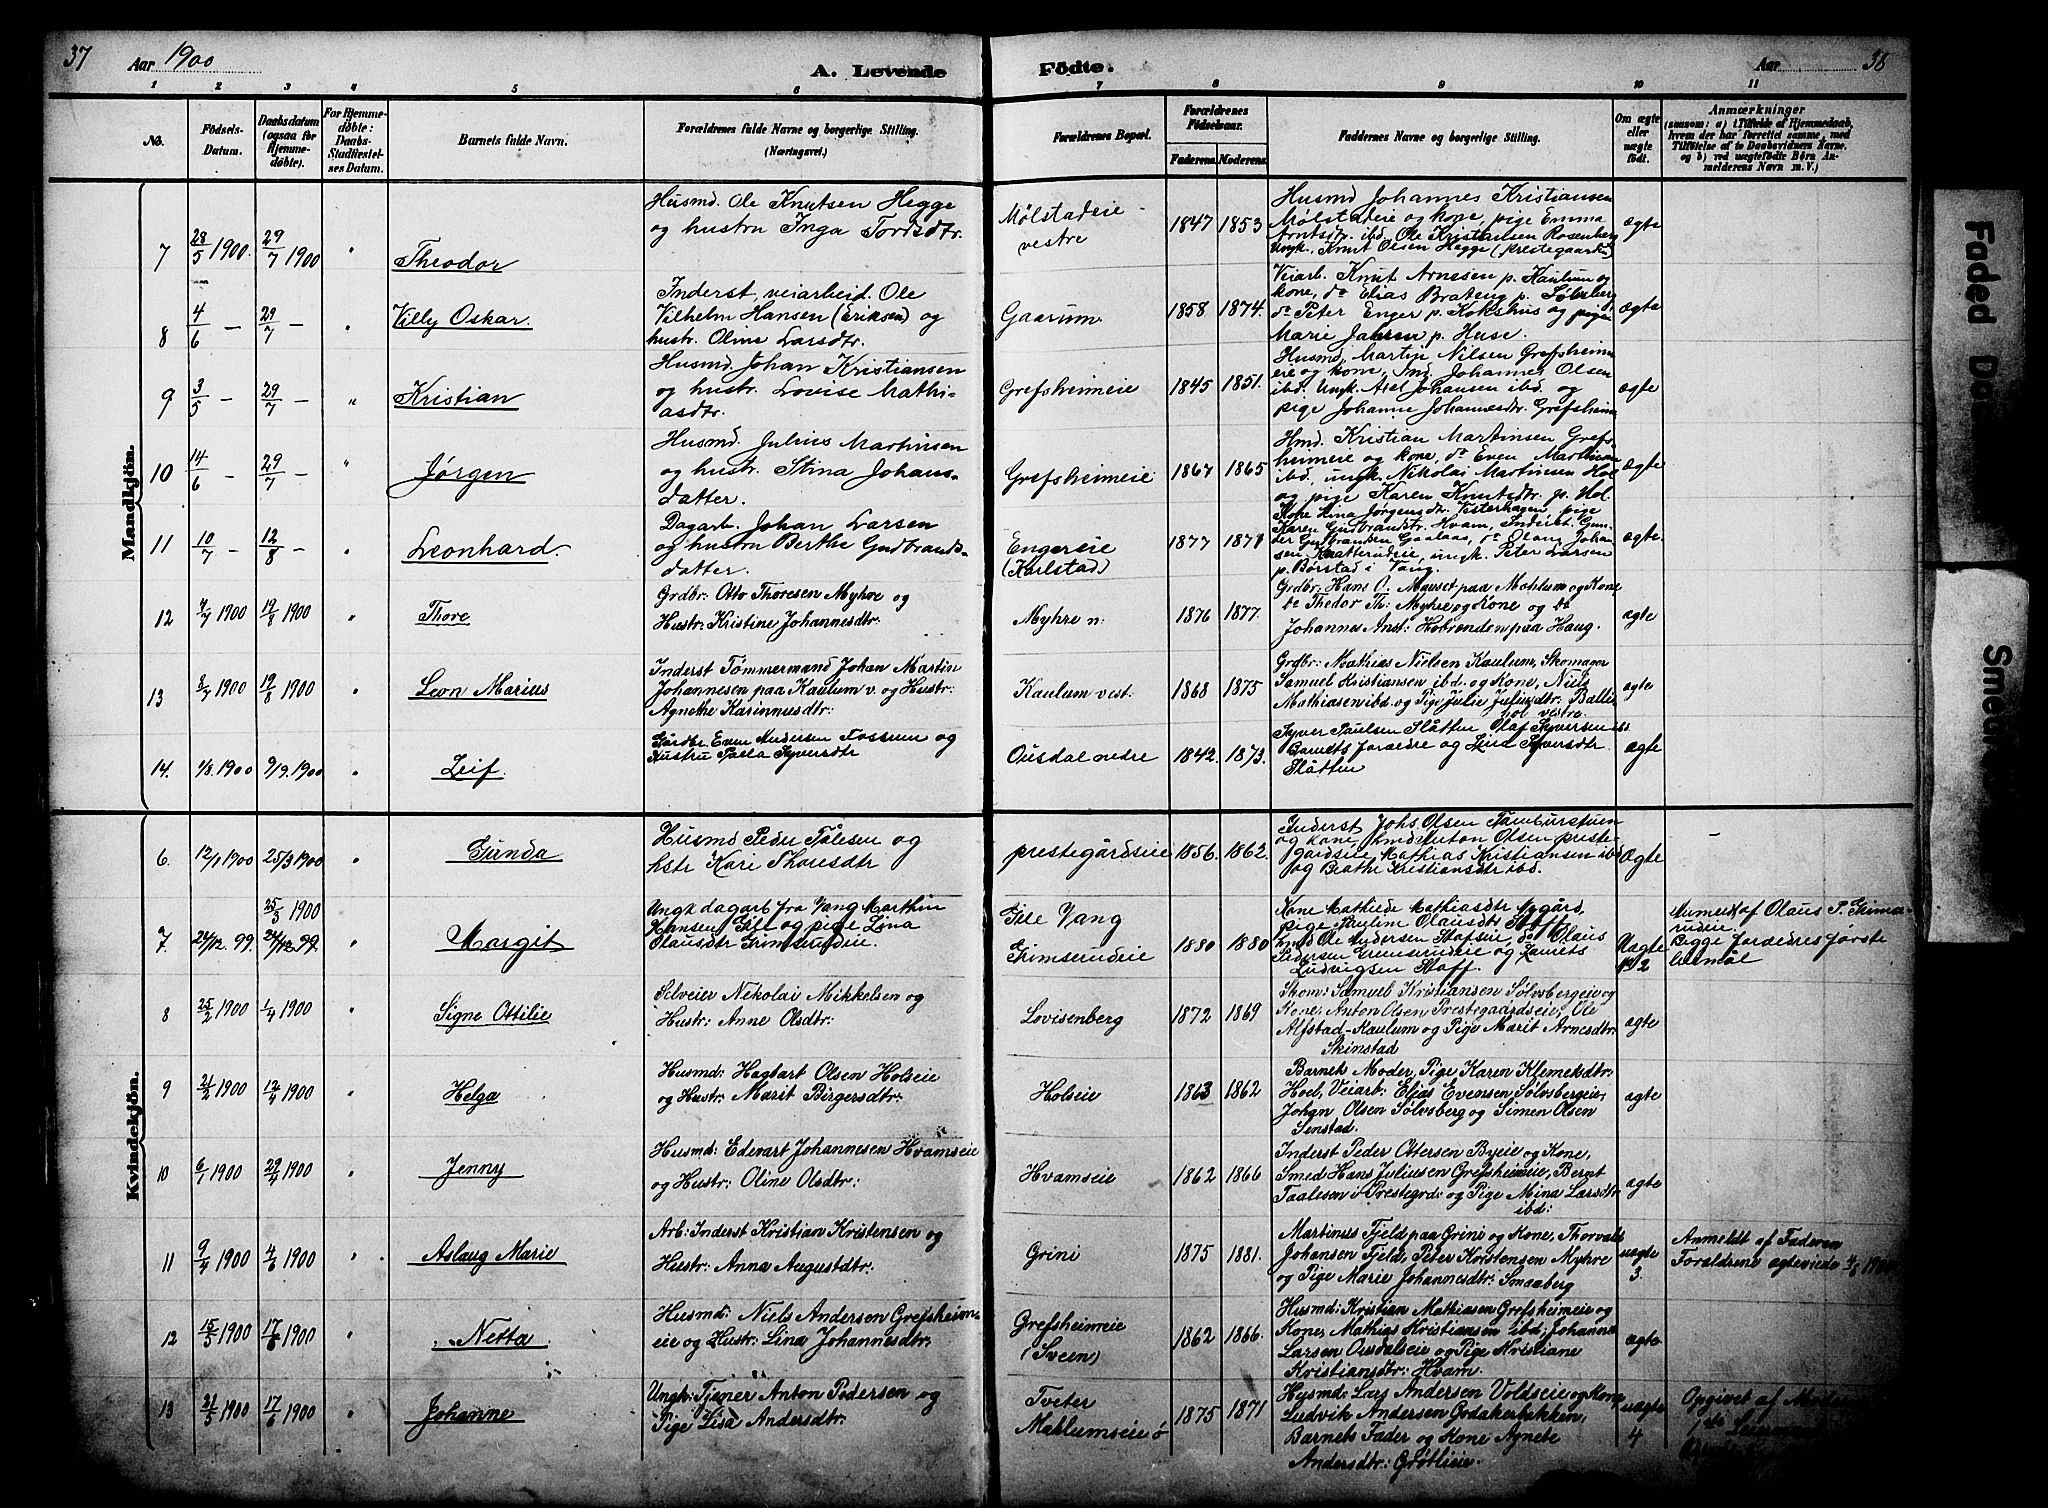 37
Aar 1900
A. Levende
Födte.
Aar
38
1 2 3 4 5 6 7 8 9 10 11
No.
Födsels-Datum.
Daabsdatum (ogsaa for Hjemmedöbte).
For Hjemmedöbte: Daabs-Stadfæstelses Datum.
Barnets fulde Navn.
Forældrenes fulde Navne og borgerlige Stilling.
(Næringsvei.)
Forældrenes Bopæl.
Forældrenes Födselsaar.
Faderens. Moderens.
Faddernes Navne og borgerlige Stilling.
Om ægte eller uægte født.
Anmærkninger
(saasom: a) i Tilfælde af Hjemmedaab,
hvem der har forrettet samme, med
Tilföielse af to Daabsvidners Navne.
og b) ved uægtefödte Børn An-
melderens Navn m. V.)
Mandkjön.
7 28/5 1900. 29/7 1900 " Theodor
Husmd. Ole Knutsen Hegge
og hustru Inga Tordsdtr.
Mølstadeie
vestre
1847 1853
Husmd Johannes Kristiansen
Mølstadeie og kone, pige Emma
Arntsdtr. ibd. Ole Kristiansen Rosenberg
Ungk. Knut Olsen Hegge (prestegaard)
ægte
8 4/6 — 29/7 — " Villy Oskar.
Inderst, veiarbeid. Ole
Vilhelm Hansen (Eriksen) og
hustr. Oline Larsdtr.
Gaarum.
1858 1874.
Veiarb. Knut Arnesen p. Kaulum og
kone, do Elias Bráteng p. Sølvsberg
do Peter Enger p. Kokshus og pige
Marie Jansen p. Huse.
ægte
9 3/5 — 29/7 — " Kristian
Husmd. Johan Kristiansen
og hustr. Lovise Mathi-
asdtr.
Grefsheimeie
1845 1851.
Husmd, Martin Nilsen Grefsheim
eie og kone, Ind. Johannes Olsen
ibd. Ungk. Axel Johansen ibd. og
pige Johanne Johannesdtr. Grefsheim
ægte
10 14/6 — 29/7 — " Jørgen
Husmd. Julius Martinsen
og hustr. Stina Johans-
datter.
Grefsheimeie
1867 1865
Hmd. Kristian Martinsen Grefs-
heimeie og kone, do Even Marthinsen
ibd, ungk. Nikolai Martinsen Hol
og pige Karen Knutsdtr. p. Hol.
ægte
11 10/7 — 12/8 — " Leonhard.
Dagarb. Johan Larsen
og hustru Berthe Gudbrands-
datter.
Engereie
(Karlstad)
1877 1871
Kone Lina Jørgensdtr. Vesterhagen, pige
Karen Gudbrandsdtr. Hvam, Inderst. Gun-
der Gulbrandsen Gaalaas, do Olaus Johan-
sen Knatterudeie, ungk. Peter Larsen
p. Børstad i Vang.
ægte.
12 4/7 1900 19/8 1900 " Thore
Grdbr: Otto Thoresen Myhre og
Hustr: Kristine Johannesdtr:
Myhre n:
1876 1877.
Grdbr: Hans O. Mauset paa Mahlum og Kone
do Thedor Th: Myhre og Kone og do
Johannes Anst: Hobrenden paa Haug.
ægte
13 8/7 1900 19/8 1900 " Leon Marius
Inderst Tømmermand Johan Martin
Johannesen paa Kaulum v. og Hustr:
Agnethe Karinnusdtr:
Kaulum vest.
1868 1875
Grdbr: Mathias Nielsen Kaulum, Skomager
Samuel Kristiansen ibd. og Kone, Niels
Mathiasen ibd. og Pige Julie Juliusdtr: Balles
hol vestre.
ægte
14. 1/8. 1900 9/9. 1900 " Leif.
Gårdbr. Even Andersen Fossum og
Hustru Paula Syversdtr
Ousdal nedre
1842. 1873.
Syver Paulsen Slåtten Olaf Syversen ibd.
Barnets forældre og Lina Syversdtr
Slåtten
ægte
Kvindekjön.
6. 12/1 1900 25/3 1900 " Gunda
Husmd Peder Pålesen og
hstr Kari Thoresdtr
prestegårdseie
1856. 1862.
Inderst Johs Olsen Tamburstuen
og kone, Smed Anton Olsen preste-
gårdseie, Mathias Kristiansen ibd
og Beathe Kristiansdtr ibd.
Ægte
–
7. 24/12. 99. 25/3 1900 24/12 99. " Margit
Ungk dagarb fra Vang Marthin
Hansen Ille og pige Lina
Olausdtr Grimserudeie.
Ille Vang
Grimserudeie
1880 1880
Kone Mathilde Mathiasdtr Nygård,
pige Pauline Olausdtr Stoff,
Husmd Ole Andersen Stofseie, do Olaus
Pedersen Grimserudeie og Laurits
Ludvigsen Stoff.
Uægte
№ 2
Anmeldt af Olaus P. Grimse-
rudeie.
Begge Forældres første
leiemål
8 25/2 1900 1/4 1900 " Signe Ottilie
Selveier Nekolai Mikkelsen og
Hustr: Anne Olsdtr:
Lovisenberg
1872 1869
Skom: Samuel Kristiansen Sølvsbergeie og
Kone, Anton Olsen Prestegaardseie, Ole
Alfstad-Kaulum og Pige Marit Arnesdtr:
Skinstad
ægte
9 21/2 1900 12/4 1900 " Helga
Husmd: Hagbart Olsen Holseie
og Hustr: Marit Birgersdtr:
Holseie
1863 1862
Barnets Moder, Pige Karen Klemetsdtr:
Hoel, Veiarb: Elias Evensen Sølvsbergeie,
Johan Olsen Sølvsberg og Simen Olsen
Senstad.
ægte
10 6/1 1900 29/4 1900 " Jenny
Husmd: Edevart Johannesen Hvamseie
og Hustr: Oline Olsdtr:
Hvamseie
1862 1866
Inderst Peder Ottersen Byeie og Kone,
Smed Hans Juliusen Grefsheimeie, Bernt
Taalesen i Prestegrd: og Pige Mina Larsdtr
ibd:
ægte
11 9/4 1900 4/6 1900 " Aslaug Marie
Arb: Inderst Kristian Kristensen og
Hustr: Anna Augustdtr:
Grini
1875 1881.
Martinus Fjeld paa Grini og Kone, Thorvald
Johansen Fjeld, Peter Kristensen Myhre
og Pige Marie Johannesdtr: Smaaberg
uægte
3.
Anmeldt af Faderen
Forældrene ægteviede 4/6 1900
12 15/5 1900 17/6 1900 " Netta
Husmd: Niels Andersen Grefsheim-
eie og Hustr: Lina Johannesdtr:
Grefsheimeie
(Sveen)
1862 1866.
Husmd: Kristian Mathiasen Grefsheimeie og
Kone, Mathias Kristiansen ibd; Johannes
Larsen Ousdalseie og Pige Kristiane
Kristiansdtr: Hvam.
ægte
13 21/5 1900 17/6 1900 " Johanne
Ungk: Tjener Anton Pedersen og
Pige Lisa Andersdtr:
Tveter
Mahlumseie ø
1875 1871
Husmd: Lars Andersen Voldseie og Kone
Ludvik Andersen Godakerbakken,
Barnets Fader og Kone Agnete
Andersdtr: Grøtlieie.
uægte
4
Opgivet af Moderen
Faded Da
Smet